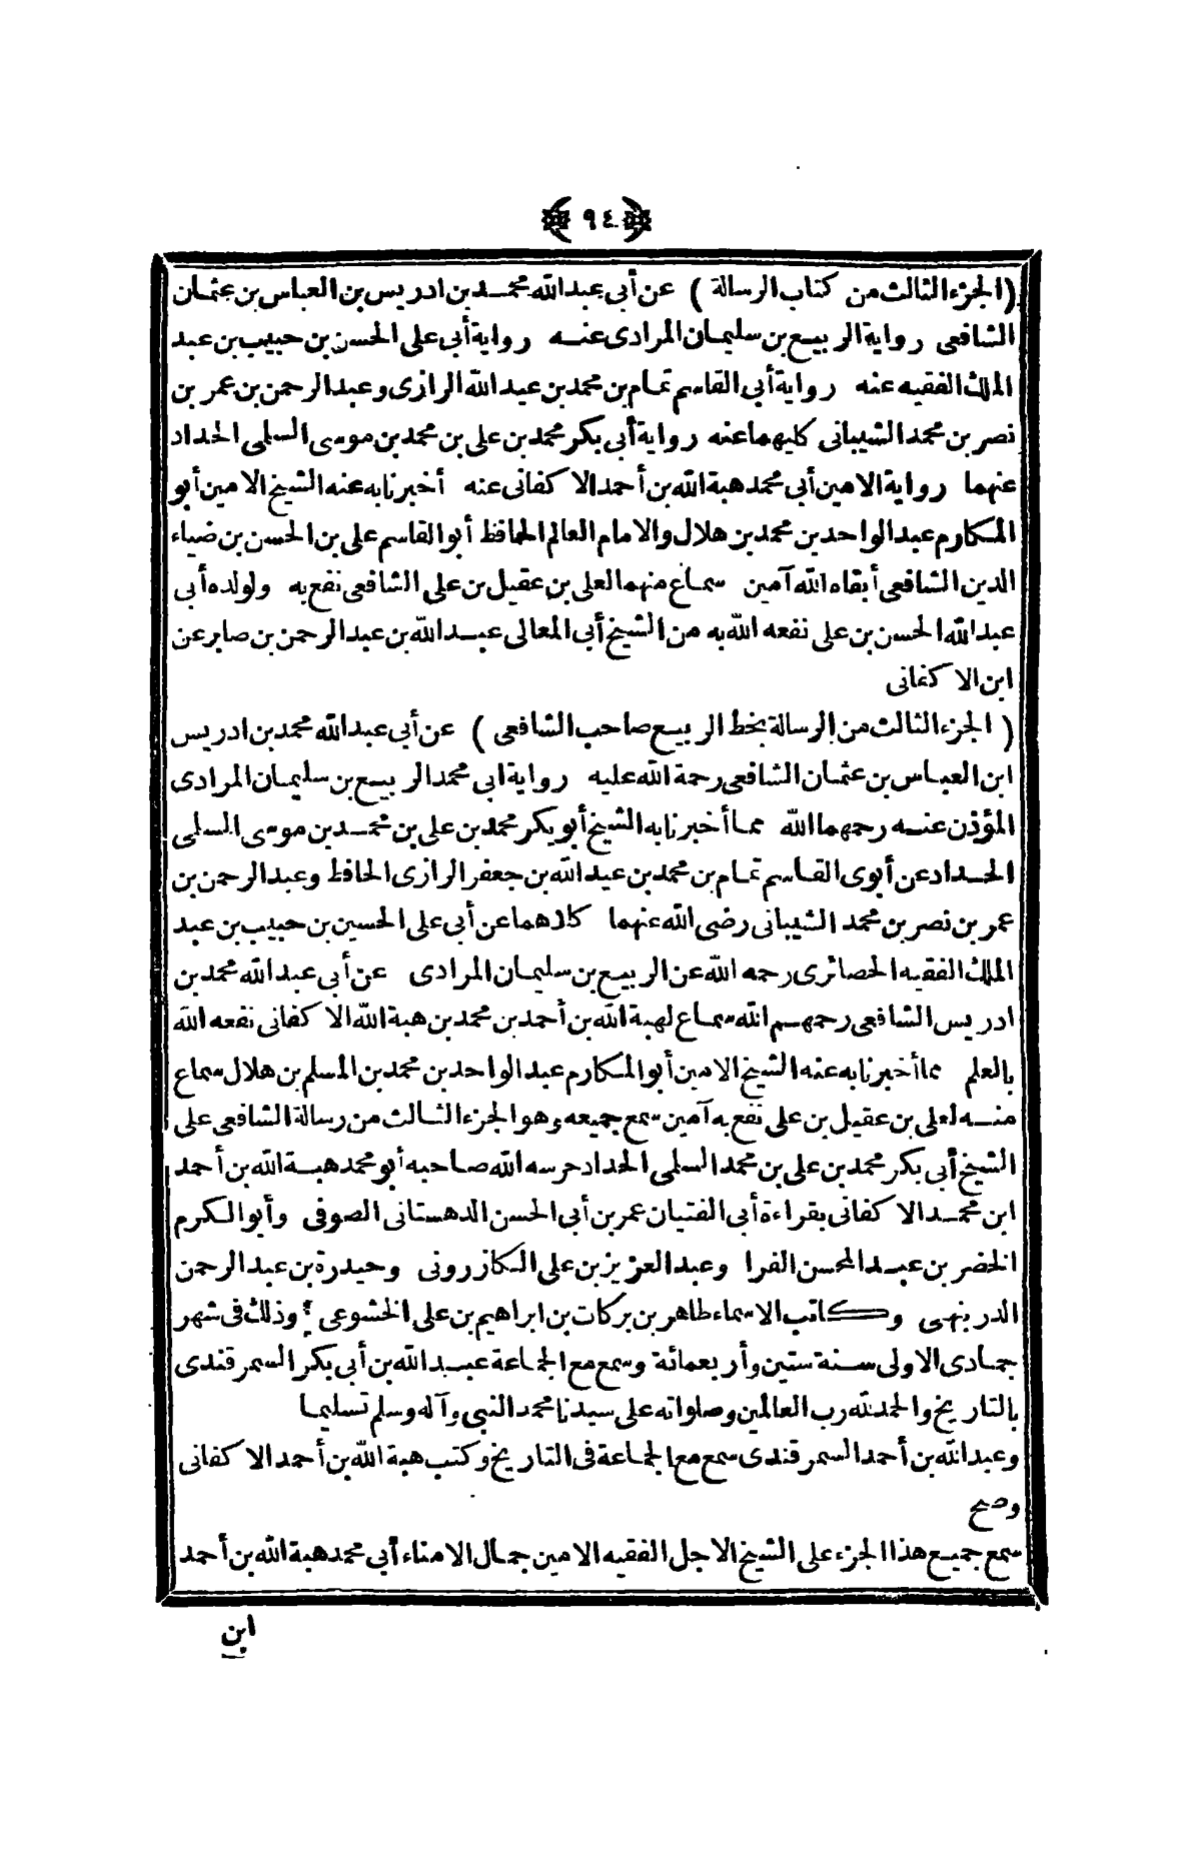 ٩٤
(الجزء الثالث من كتاب الرسالة) عن أبى عبد الله محمد بن ادريس بن العباس بن عثمان
الشافعى رواية الربيع بن سليمان المرادى عنه رواية أبى على الحسن بن حبيب بن عبد
الملك الفقيه عنه رواية أبى القاسم تمام بن محمد بن عبد الله الرازى وعبد الرحمن بن عمر بن
نصر بن محمد الشيبانى كليهما عنه رواية أبى بكر محمد بن على بن محمد بن موسى السلمى الحداد
عنهما رواية الامين أبى محمد هبة الله بن أحمد الاكفانى عنه أخبرنا به عنه الشيخ الامين أبو
المكارم عبد الواحد بن محمد بن هلال والامام العالم الحافظ أبو القاسم على بن الحسن بن ضياء
الدين الشافعى أبقاه الله آمين سماع منهما لعلى بن عقيل بن على الشافعى نفع به ولولده أبى
عبد الله الحسن بن على نفعه الله به من الشيخ أبى المعالى عبد الله بن عبد الرحمن بن صابر عن
ابن الاكفانى
(الجزء الثالث من الرسالة بخط الربيع صاحب الشافعى) عن أبى عبد الله محمد بن ادريس
ابن العباس بن عثمان الشافعى رحمة الله عليه رواية ابى محمد الربيع بن سليمان المرادى
المؤذن عنه رحمهما الله مما أخبرنا به الشيخ أبو بكر محمد بن على بن محمد بن موسى السلمى
الحداد عن أبوى القاسم تمام بن محمد بن عبد الله بن جعفر الرازى الحافظ وعبد الرحمن بن
عمر بن نصر بن محمد الشيبانى رضى الله عنهما كلاهما عن أبى على الحسين بن حبيب بن عبد
الملك الفقيه الحصائرى رحمه الله عن الربيع بن سليمان المرادى عن أبى عبد الله محمد بن
ادريس الشافعى رحمهم الله سماع لهبة الله بن أحمد بن محمد بن هبة الله الاكفانى نفعه الله
بالعلم مما أخبرنا به عنه الشيخ الامين أبو المكارم عبد الواحد بن محمد بن المسلم بن هلال سماع
منه لعلى بن عقيل بن على نفع به آمين سمع جميعه وهو الجزء الثالث من رسالة الشافعى على
الشيخ أبى بكر محمد بن على بن محمد السلمى الحداد حرسه الله صاحبه أبو محمد هبة الله بن أحمد
ابن محمد الاكفانى بقراءة أبى الفتيان عمر بن أبى الحسن الدهستانى الصوفى وأبو الكرم
الخضر بن عبد المحسن الفرا وعبد العزيز بن على الكازرونى وحيدرة بن عبد الرحمن
الدربنهى وكاتب الاسماء طاهر بن بركات بن ابراهيم بن على الخشوعى ؛ وذلك فى شهر
جمادى الاولى سنة ستين وأربعمائة وسمع مع الجماعة عبد الله بن أبى بكر السمرقندى
بالتاريخ والحمد لله رب العالمين وصلواته على سيدنا محمد النبى وآله وسلم تسليما
وعبد الله بن أحمد السمرقندى سمع مع الجماعة فى التاريخ وكتب هبة الله بن أحمد الاكفانى
وصح
سمع جميع هذا الجزء على الشيخ الاجل الفقيه الامين جمال الامناء أبى محمد هبة الله بن أحمد
ابن